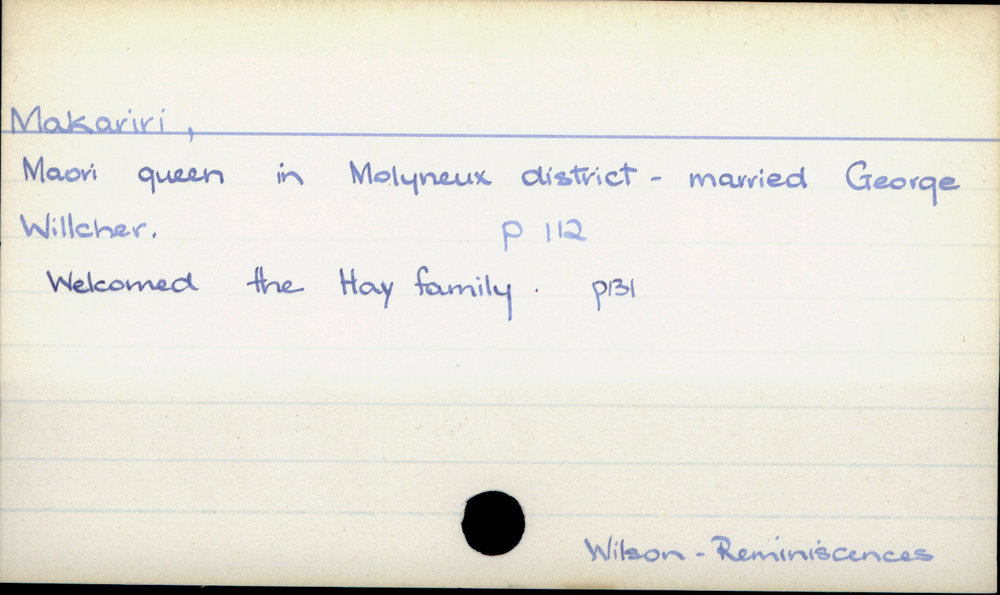 Makariri,
Maori queen in Molyneux district - married George
Willcher. p 112
Welcomed the Hay family. p131
Wilson - Reminiscences